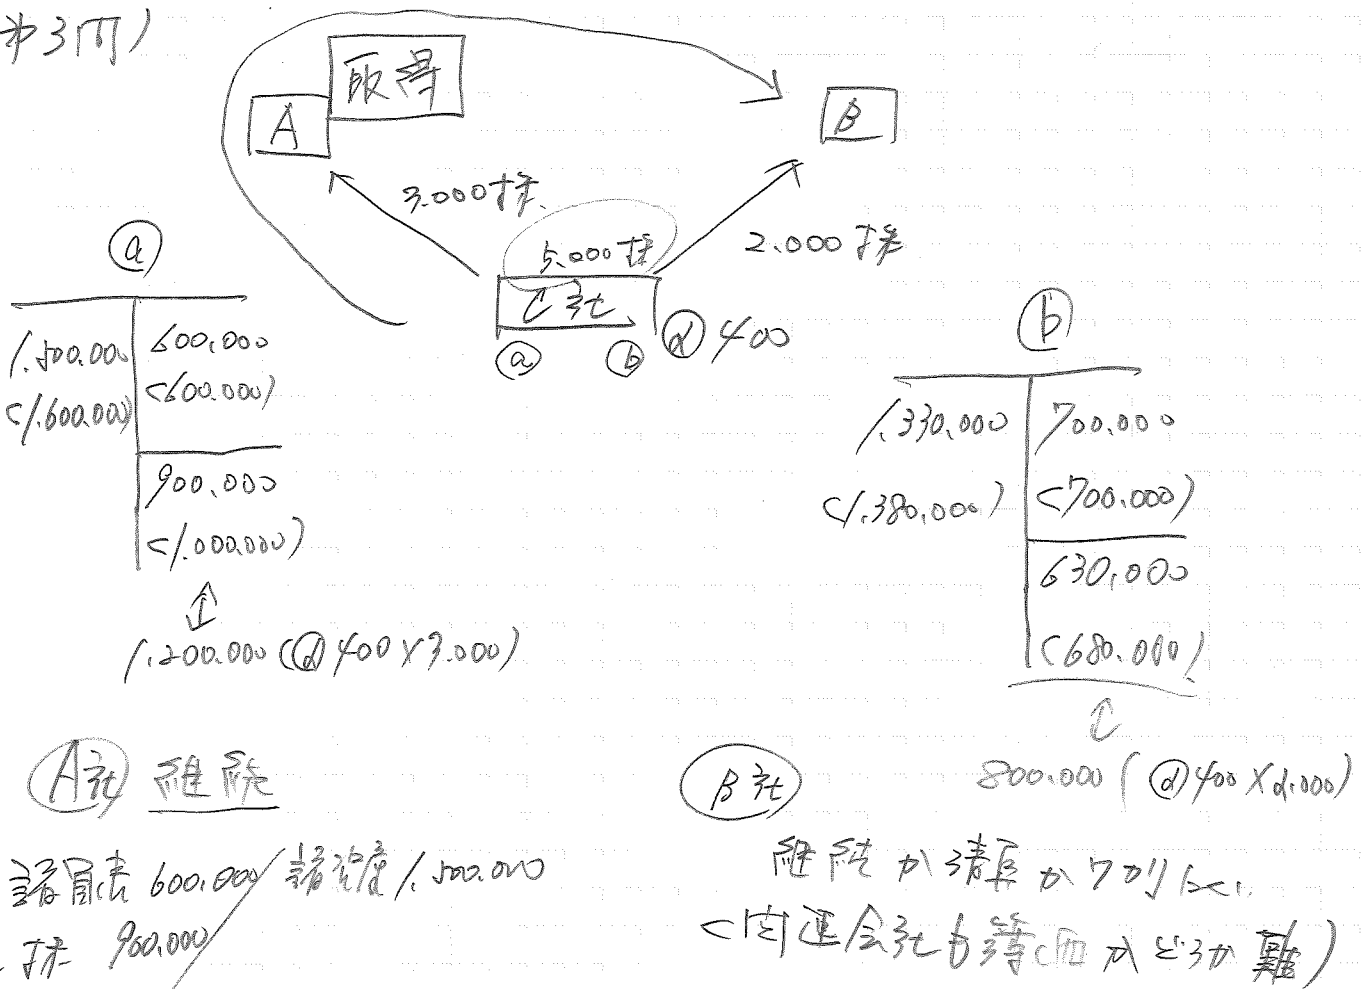 第3問)
取得
A
B
3.000株
5.000株
2.000株
C社
@400
ⓐ
ⓑ
ⓐ
1.500.000
600.000
(1.600.000)
(600.000)
900.000
(1.000.000)
↕
1.200.000(@400×3.000)
ⓑ
1.330.000
700.000
(1.380.000)
(700.000)
630.000
(680.000)
↕
800.000(@400×2.000)
A社 継続
諸負債 600.000/諸資産 1.500.000
株 900.000
B社
継続か清算かワカリにくい
(関連会社も等価かどうか難)